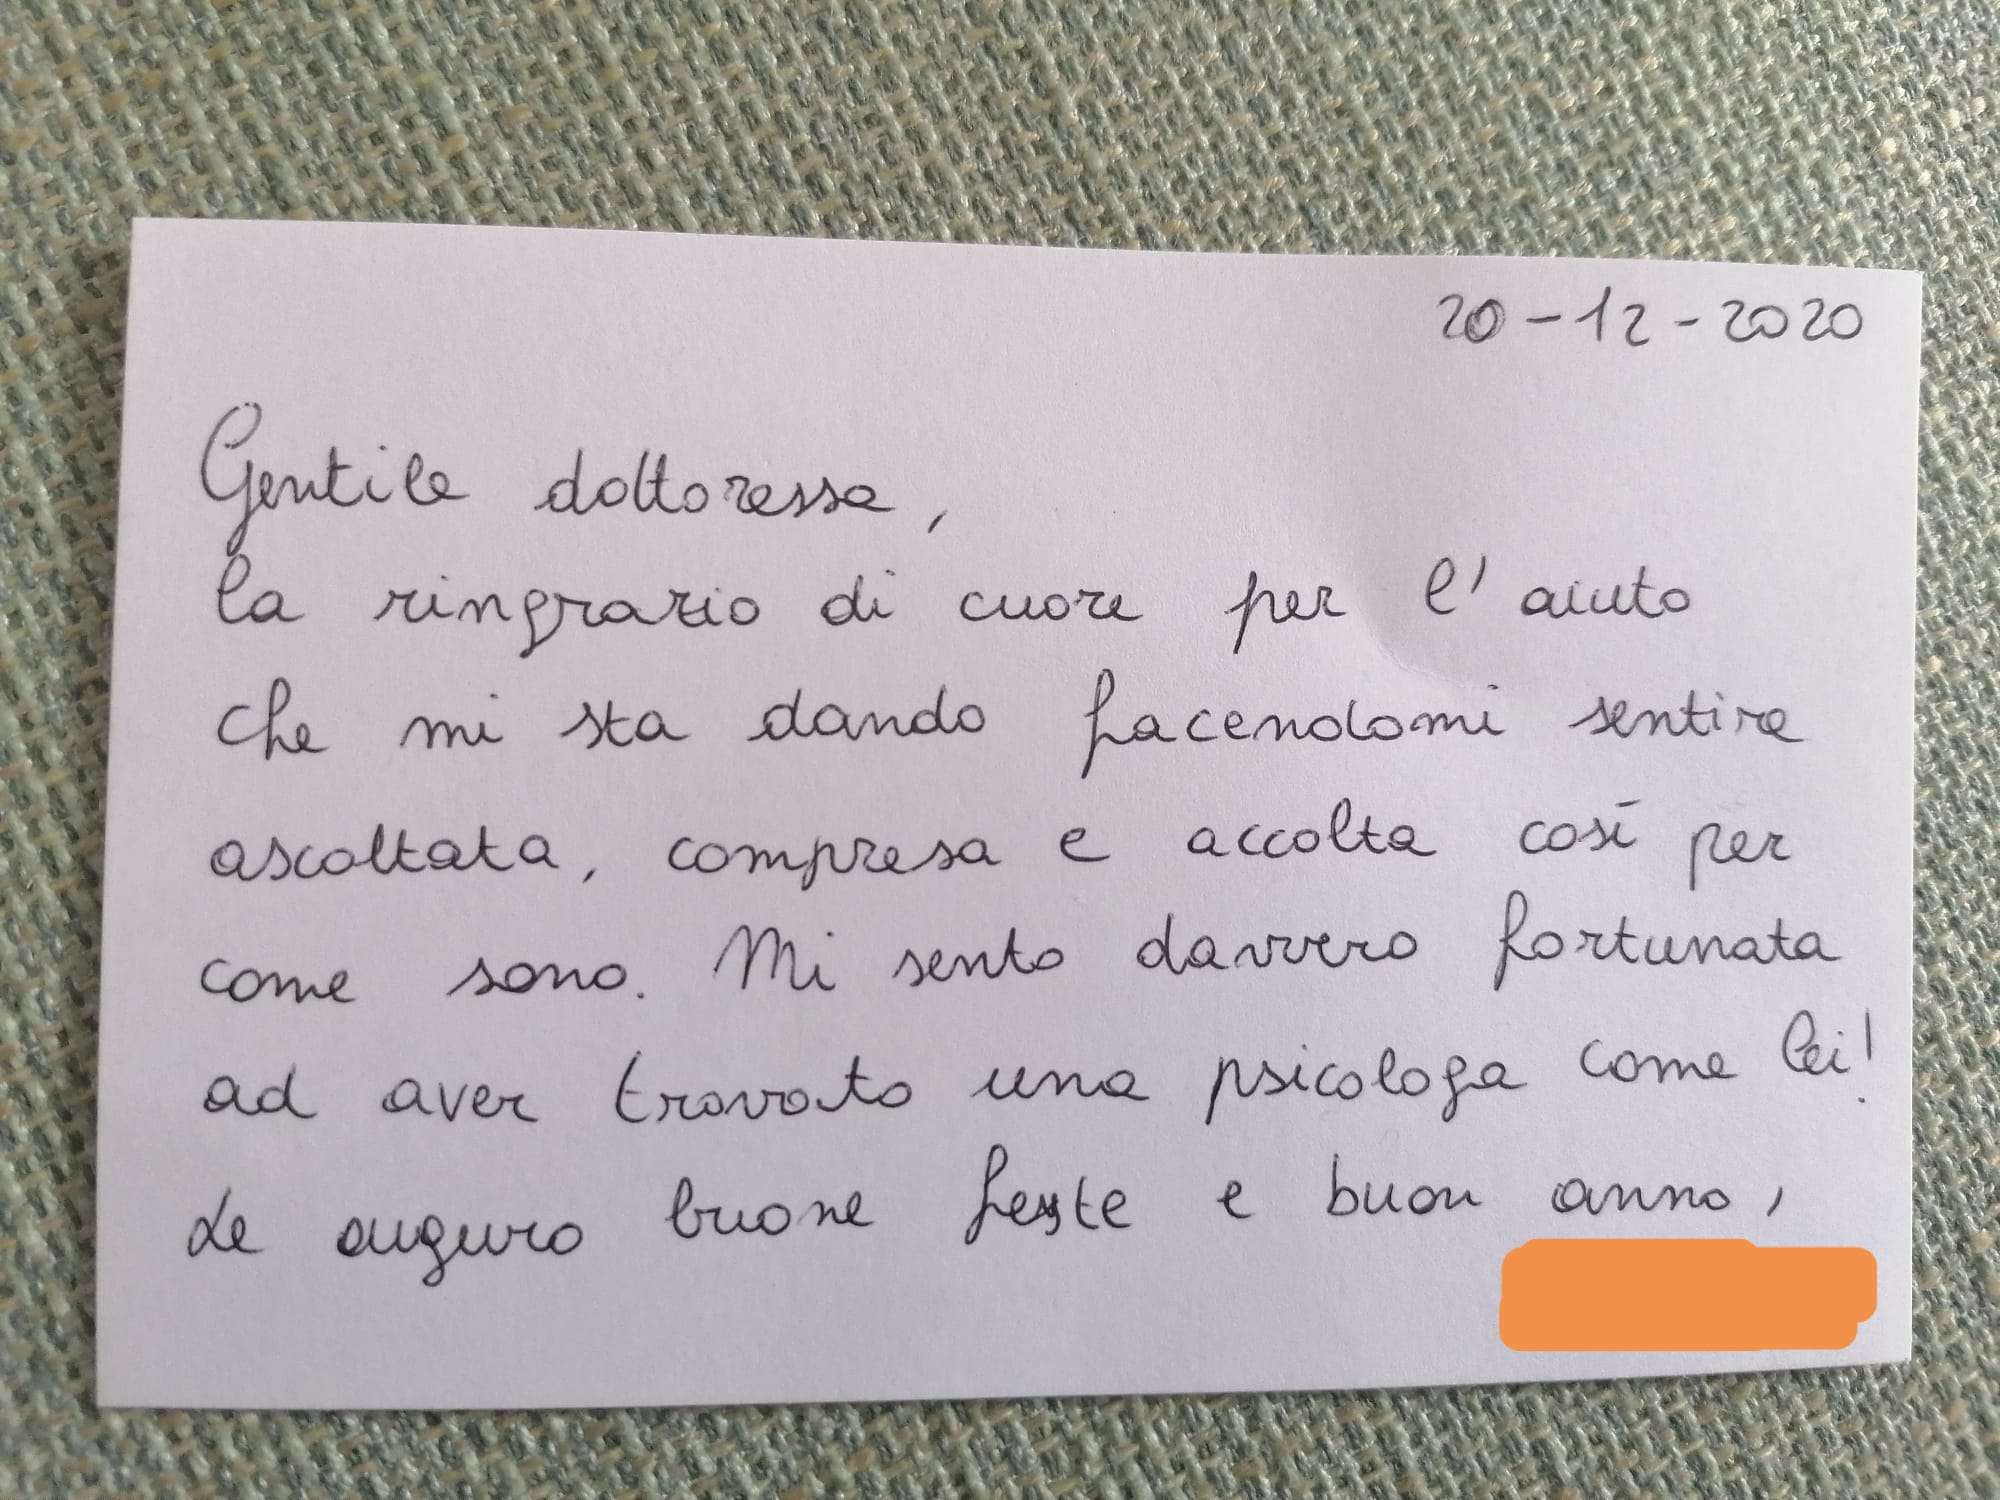 20-12-2020
Gentile dottoressa,
la ringrazio di cuore per l'aiuto
che mi sta dando facendomi sentire
ascoltata, compresa e accolta così per
come sono. Mi sento davvero fortunata
ad aver trovato una psicologa come lei!
Le auguro buone feste e buon anno,